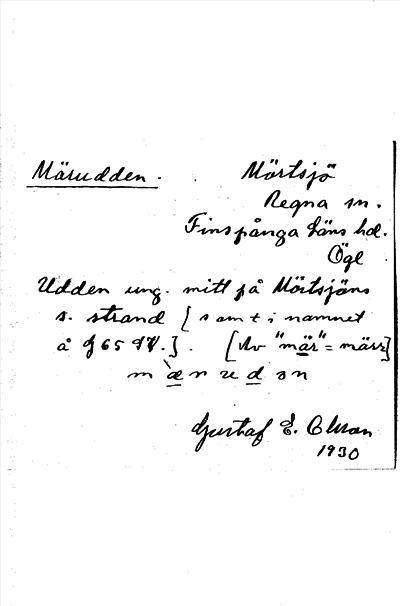 Märudden.
Mörtsjö
Regna sn.
Finspånga läns hd.
Ögl
Udden ung. mitt på Mörtsjöns
s. strand [samt i namnet
å J 65 IV.]. [Av "mär" = märr]
Gustaf E. Olsson
1930